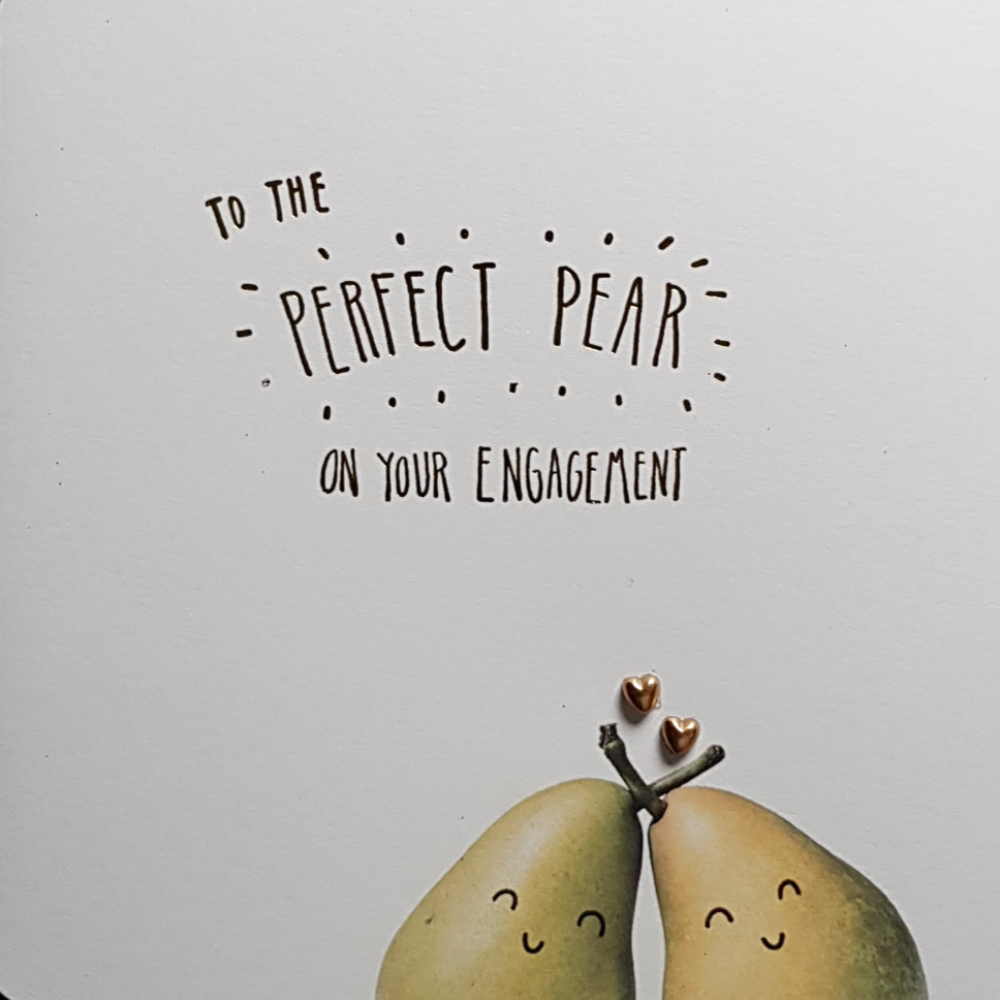 TO THE
PERFECT PEAR
ON YOUR ENGAGEMENT